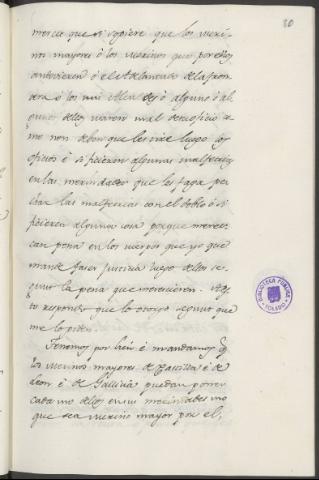 80
merced que si supiere que los meri-
nos mayores ó los merinos que por ellos
andovieren ó el Adelantado de la fron-
tera ó los mis Alcaldes ó alguno ó al-
gunos dellos usaren mal de su oficio
me non deben que les tire luego los
oficios é si ficieren algunas malfetrias
en las merindades que les faga pe-
char las malfetrias con el doblo é si
ficieren alguna cosa porque meres-
can pena en los cuerpos que yo que
mande faser justicia luego dellos se-
gund la pena que merescieren. A es-
to respondo que lo otorgo segund que
me lo piden.
Tenemos por bien é mandamos q.
los merinos mayores de Castilla é de
Leon é de Gallicia puedan poner
cada uno dellos en sus merindades uno
que sea merino mayor por el,
BIBLIOTECA PÚBLICA
TOLEDO